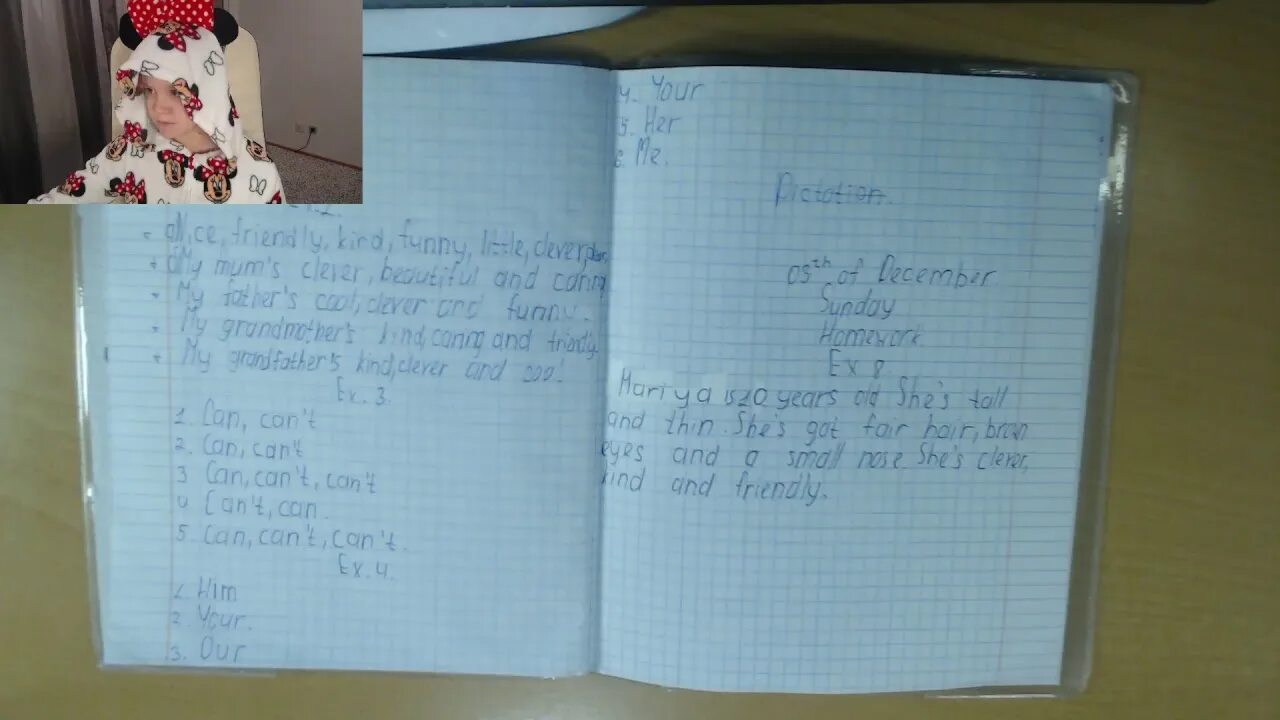 nice, friendly, kind, funny, little, clever
My mum's clever, beautiful and caring
My father's cool, clever and funny.
My grandmother's kind, caring and friendly
My grandfather's kind, clever and
Ex. 3.
1. Can, can't
2. Can, can't
3 Can, can't, can't
4 Can't, can.
5. Can, can't, can't.
Ex. 4.
1. Him
2. Your.
3. Our
4. Your
5. Her
6. Me.
Dictation.
05th of December
Sunday
Homework
Ex 8.
is 20 years old She's tall
and thin. She's got fair hair, brown
eyes and a small nose. She's clever,
kind and friendly.